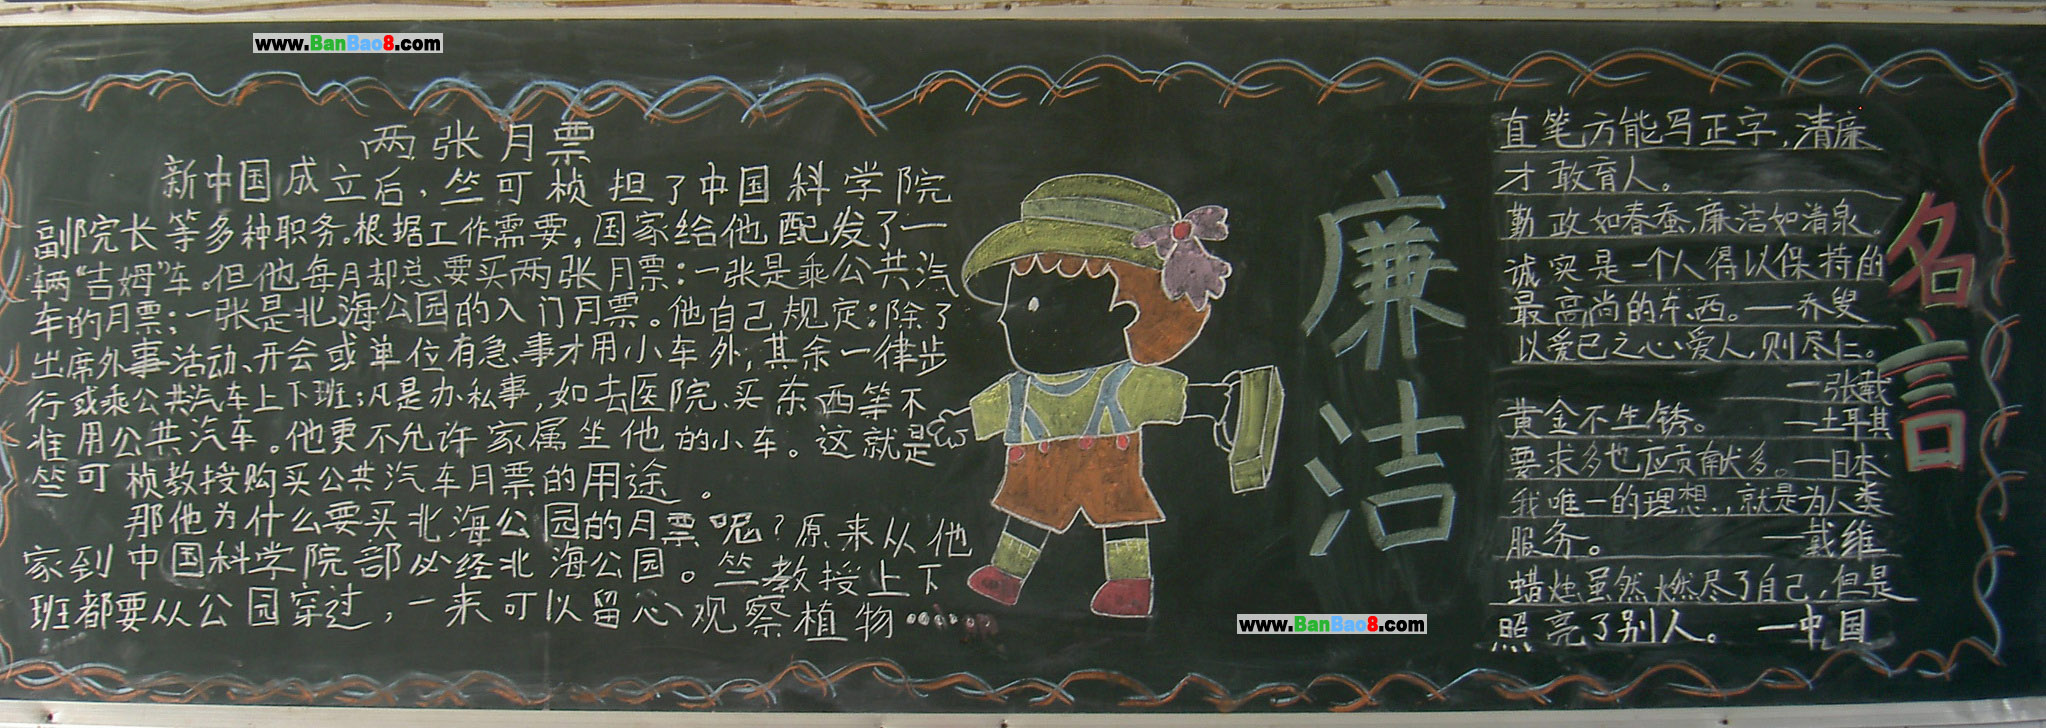 www.BanBao8.com
两张月票
新中国成立后，竺可桢担了中国科学院
副院长等多种职务。根据工作需要，国家给他配发了一
辆“吉姆”车。但他每月却总要买两张月票：一张是乘公共汽
车的月票；一张是北海公园的入门月票。他自己规定：除了
出席外事活动、开会或单位有急事才用小车外，其余一律步
行或乘公共汽车上下班；凡是办私事，如去医院、买东西等不
准用公共汽车。他更不允许家属坐他的小车。这就是
竺可桢教授购买公共汽车月票的用途。
那他为什么要买北海公园的月票呢？原来从他
家到中国科学院部必经北海公园。竺教授上下
班都要从公园穿过，一来可以留心观察植物……
廉洁
名言
直笔方能写正字，清廉
才敢育人。
勤政如春蚕，廉洁如清泉。
诚实是一个人得以保持的
最高尚的东西。—乔叟
以爱己之心爱人，则尽仁。
—张载
黄金不生锈。 —土耳其
要求多也应贡献多。—日本
我唯一的理想，就是为人类
服务。 —戴维
蜡烛虽然燃尽了自己，但是
照亮了别人。 —中国
www.BanBao8.com